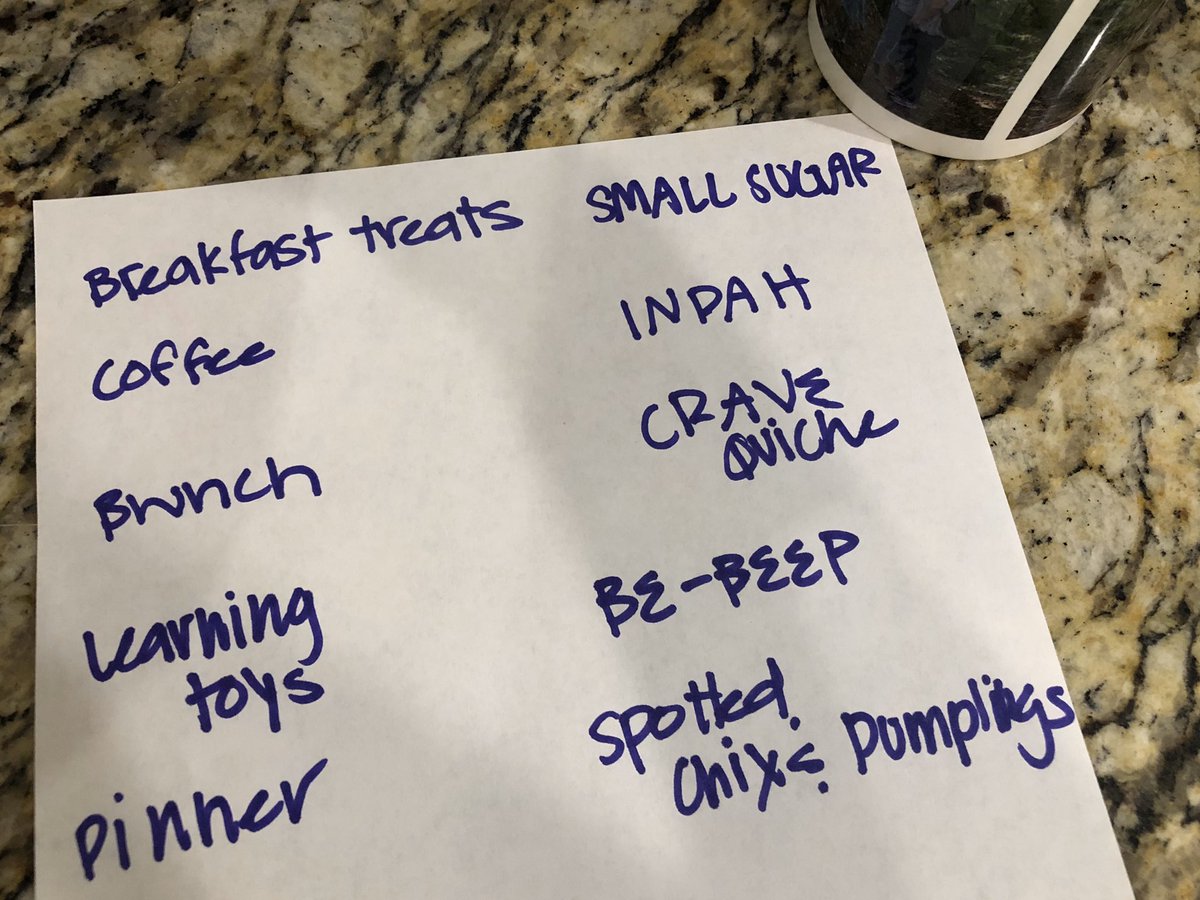 Breakfast treats SMALL SUGAR
Coffee INDAH
Brunch CRAVE
Quiche
Learning BE-BEEP
toys
Dinner Spotted
Chix & Dumplings